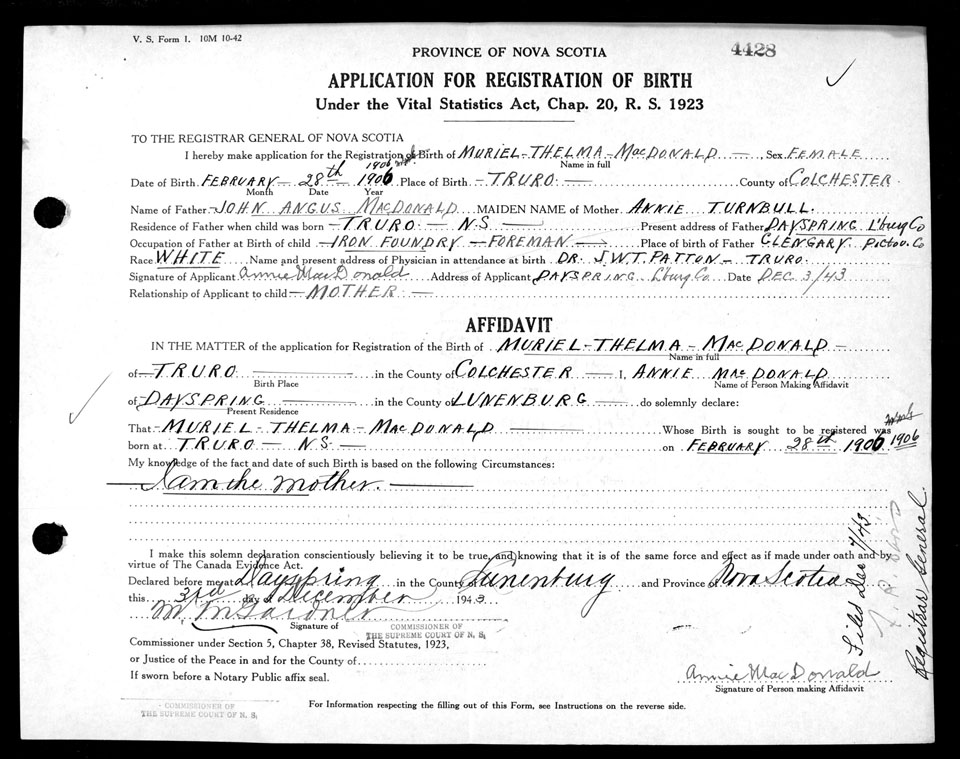 V. S. Form 1. 10M 10-42
4428
PROVINCE OF NOVA SCOTIA
APPLICATION FOR REGISTRATION OF BIRTH
Under the Vital Statistics Act, Chap. 20, R. S. 1923
TO THE REGISTRAR GENERAL OF NOVA SCOTIA
I hereby make application for the Registration of Birth of MURIEL-THELMA-MACDONALD — Sex FEMALE
Name in full
1906
Date of Birth FEBRUARY — 28th 1906 Place of Birth — TRURO — County of COLCHESTER
Month Date Year
Name of Father JOHN ANGUS MACDONALD MAIDEN NAME of Mother ANNIE TURNBULL
Residence of Father when child was born — TRURO — N.S — Present address of Father DAYSPRING L'burg Co
Occupation of Father at Birth of child — IRON FOUNDRY — FOREMAN — Place of birth of Father GLENGARY Pictou Co
Race WHITE Name and present address of Physician in attendance at birth DR. J.W.T. PATTON — TRURO.
Signature of Applicant Annie MacDonald Address of Applicant DAYSPRING L'burg Co Date DEC 3/43
Relationship of Applicant to child — MOTHER —
AFFIDAVIT
IN THE MATTER of the application for Registration of the Birth of MURIEL-THELMA-MACDONALD —
Name in full
of — TRURO — in the County of COLCHESTER — I, ANNIE MACDONALD
Birth Place Name of Person Making Affidavit
of DAYSPRING — in the County of LUNENBURG — do solemnly declare:
Present Residence
That — MURIEL-THELMA-MACDONALD — Whose Birth is sought to be registered was
born at TRURO — N.S — on FEBRUARY 28th 1906 1906
My knowledge of the fact and date of such Birth is based on the following Circumstances:
— I am the mother. —
I make this solemn declaration conscientiously believing it to be true, and knowing that it is of the same force and effect as if made under oath and by
virtue of The Canada Evidence Act.
Declared before me at Dayspring in the County of Lunenburg and Province of Nova Scotia
this 3rd day of December 1943
M McGardner
Signature of
COMMISSIONER OF
THE SUPREME COURT OF N. S.
Commissioner under Section 5, Chapter 38, Revised Statutes, 1923,
or Justice of the Peace in and for the County of
If sworn before a Notary Public affix seal.
Annie MacDonald
Signature of Person making Affidavit
COMMISSIONER OF
THE SUPREME COURT OF N. S.
For Information respecting the filling out of this Form, see Instructions on the reverse side.
Filed Dec 7/43
Registrar General.